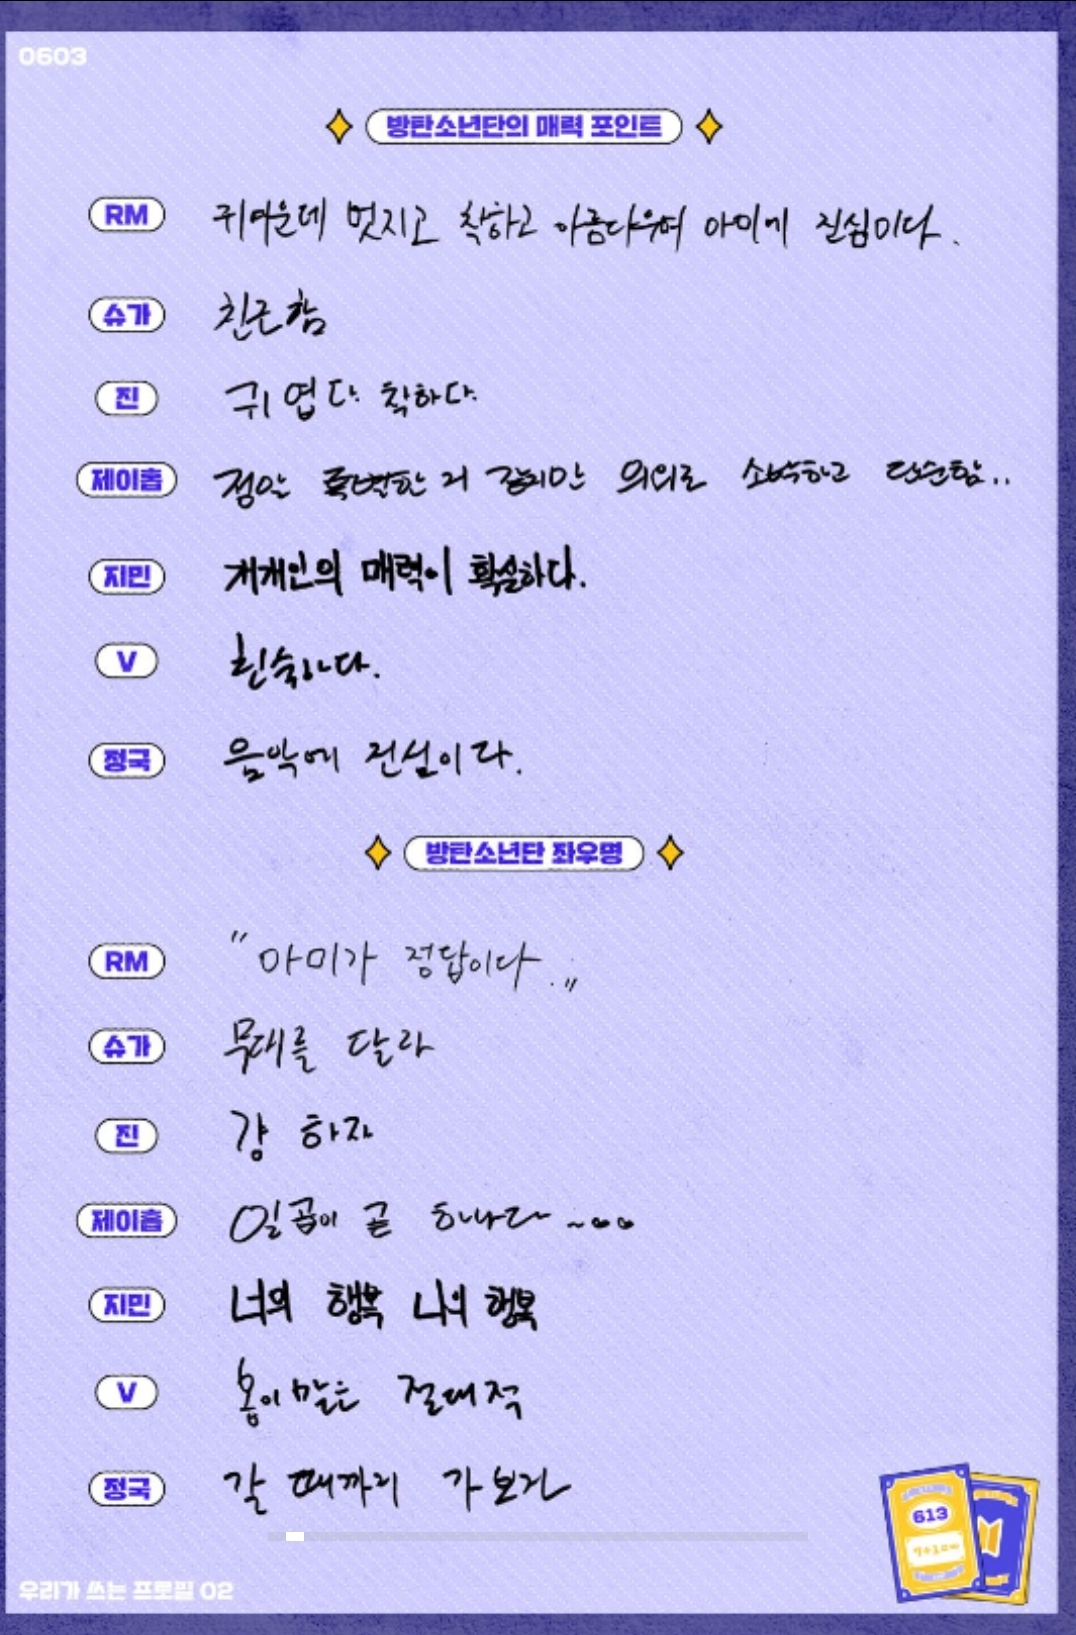 0603
방탄소년단의 매력 포인트
RM 귀여운데 멋지고 착하고 아름다우며 아미에 진심이다.
슈가 친근함
진 귀엽다 착하다
제이홉 정말 특별한 거 같지만 의외로 소박하고 단순함..
지민 개개인의 매력이 확실하다.
V 친숙하다.
정국 음악에 진심이다.
방탄소년단 좌우명
RM "아미가 정답이다."
슈가 무대를 달라
진 걍 하자
제이홉 일곱이 곧 하나다~
지민 너의 행복 나의 행복
V 홉이 말은 절대적
정국 갈 때까지 가보자
613
우리가 쓰는 프로필 02